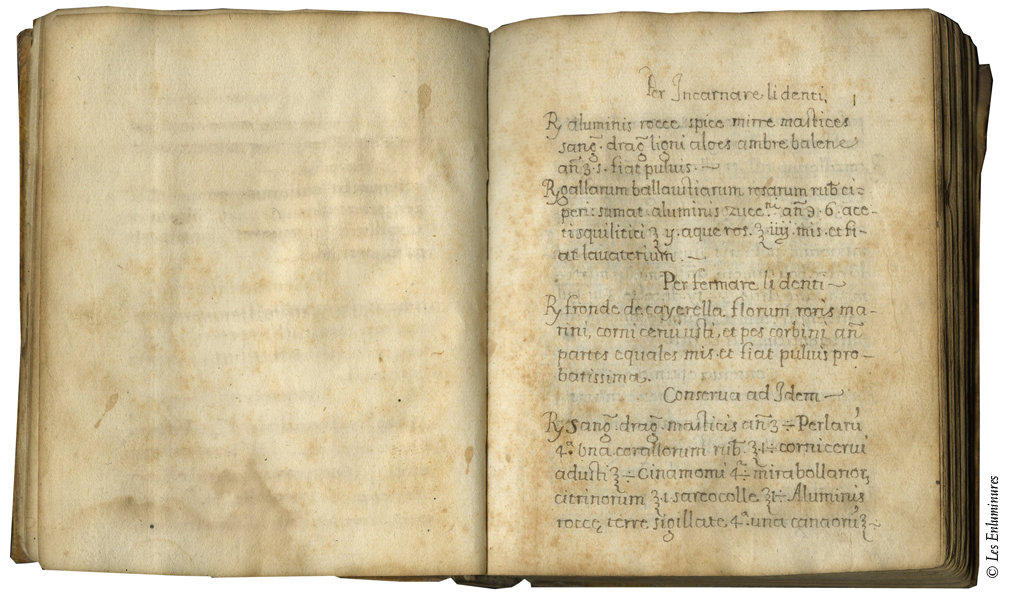 Per Incarnare li denti.
1
℞ aluminis rocce spice mirre mastices
sang̃. drag̃ ligni aloes ambre balene
añ ʒ. s. fiat puluis.
℞ gallarum ballaustiarum rosarum rub̃ ci=
peri: sumat aluminis zucc. añ ℈. 6. ace-
ti squilitici ℥ y. aque ros. ℥ iiij. mis. et fi-
at lauaterium.
Per fermare li denti
℞ fronde de cayerella, florum roris ma-
rini, corni cerui usti, et pes corbini añ
partes equales mis. et fiat puluis pro-
batissima.
Conserua ad Idem
℞ Sang̃. drag̃. masticis añ ʒ ÷ Perlarũ
4.ª una corallorum rub̃. ʒ1÷ corni cerui
adusti ʒ ÷ Cinamomi 4.ª ÷ mirabollanor,
citrinorum ʒ1 sarcocolle ʒ1÷ Aluminis
roccę, terre sigillate 4.ª una ʒ
© Les Enluminures